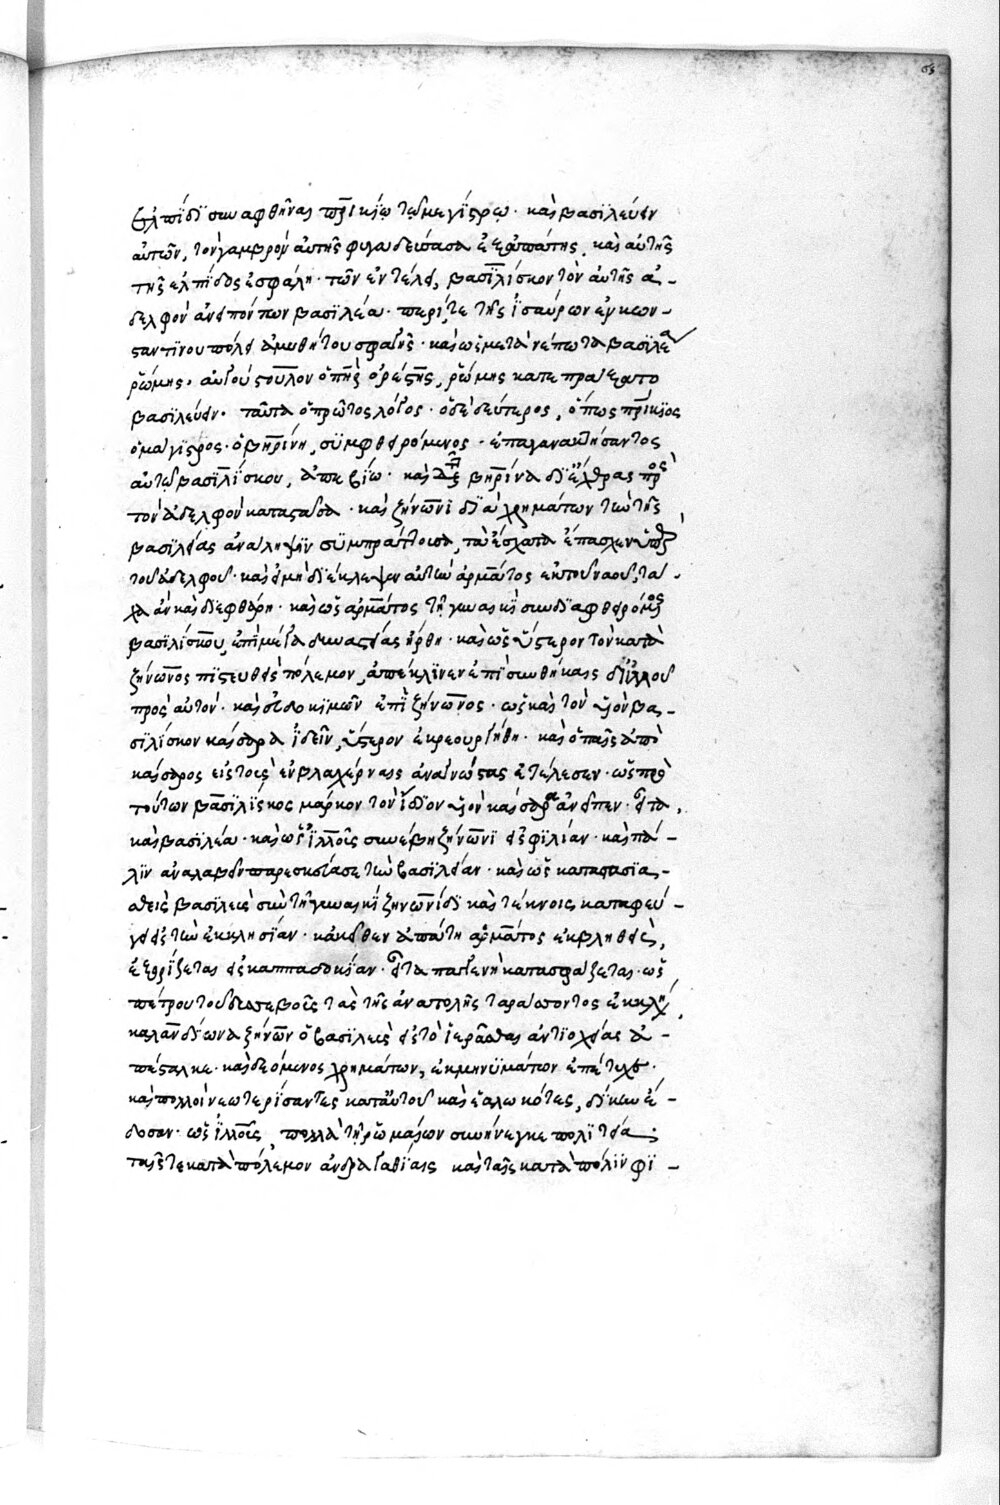 ἐλπίδι συναφθῆναι πατρικίῳ τῷ μαγίστρῳ· καὶ βασιλεύειν
αὐτῶν, τὸν γαμβρὸν αὐτῆς φυγαδεύσασα ἐξ ἀπάτης, καὶ αὐτῆς
τῆς ἐλπίδος ἐσφάλη· τῶν ἐν τέλει, βασιλίσκον τὸν αὐτῆς ἀ-
δελφὸν ἀνειπόντων βασιλέα· περί τε τῆς ἰσαύρων ἐν κων-
σταντίνου πόλει ἀμυθήτου σφαγῆς· καὶ ὡς μετὰ νέπωτα βασιλέα
ῥώμης· αὐγούστουλον ὁ πατὴρ ὀρέστης, ῥώμης κατεπράξατο
βασιλεύειν· ταῦτα ὁ πρῶτος λόγος· ὁ δὲ δεύτερος, ὅπως πατρίκιος
ὁ μάγιστρος· ὁ βηρίνῃ, συμφθειρόμενος· ἐπαγανακτήσαντος
αὐτῷ βασιλίσκου, ἀπεβίω· καὶ ὡς βηρίνα δι' ἔχθρας πρὸς
τὸν ἀδελφὸν καταστᾶσα· καὶ ζήνωνι διὰ χρημάτων τὴν τῆς
βασιλείας ἀνάληψιν συμπράττουσα, τὰ ἔσχατα ἔπασχεν ὑπὸ
τοῦ ἀδελφοῦ· καὶ εἰ μὴ διέκλεψεν αὐτὴν ἁρμάτος ἐκ τοῦ ναοῦ, τά-
χα ἂν καὶ διεφθάρη· καὶ ὡς ἁρμάτος τῇ γυναικὶ συνδιαφθειρόμενος
βασιλίσκου, ἐπὶ μέγα δυναστείας ἤρθη· καὶ ὡς ὕστερον τὸν κατὰ
ζήνωνος πιστευθεὶς πόλεμον, ἀπέκλινεν ἐπὶ συνθήκαις δι' ἰλλοῦ
πρὸς αὐτόν· καὶ εὐδοκιμῶν ἐπὶ ζήνωνος· ὡς καὶ τὸν υἱὸν βα-
σιλίσκον καίσαρα ἰδεῖν, ὕστερον ἐκρεουργήθη· καὶ ὁ παῖς ἀπὸ
καίσαρος εἰς τοὺς ἐν βλαχέρναις ἀναγνώστας ἐτέλεσεν· ὡς πρὸ
τούτων βασιλίσκος μάρκον τὸν ἴδιον υἱὸν καίσαρα ἀνεῖπεν· εἶτα
καὶ βασιλέα· καὶ ὡς ἰλλοῦς συνέβη ζήνωνι εἰς φιλίαν· καὶ πά-
λιν ἀναλαβεῖν παρεσκεύασε τὴν βασιλείαν· καὶ ὡς καταστασια-
σθεὶς βασιλεὺς σὺν τῇ γυναικὶ ζηνωνίδι καὶ τέκνοις καταφεύ-
γει εἰς τὴν ἐκκλησίαν· κἀκεῖθεν ἀπάτῃ ἁρμάτος ἐκβληθεὶς,
ἐξορίζεται εἰς καππαδοκίαν· εἶτα παγγενῆ κατασφάζεται· ὡς
πέτρου τοῦ δυσσεβοῦς τὰς τῆς ἀνατολῆς ταράσσοντος ἐκκλησίας,
καλανδίωνα ζήνων ὁ βασιλεὺς εἰς τὸ ἱερᾶσθαι ἀντιοχείας ἀ-
πέσταλκε· καὶ δεόμενος χρημάτων, ἐκ μηνυμάτων ἐπέτυχε·
καὶ πολλοὶ νεωτερίσαντες κατ' αὐτοῦ καὶ ἑαλωκότες, δίκην ἔ-
δοσαν· ὡς ἰλλοῦς, πολλὰ τῇ ῥωμαίων συνήνεγκε πολιτείᾳ·
ταῖς τε κατὰ πόλεμον ἀνδραγαθίαις καὶ ταῖς κατὰ πόλιν φι-